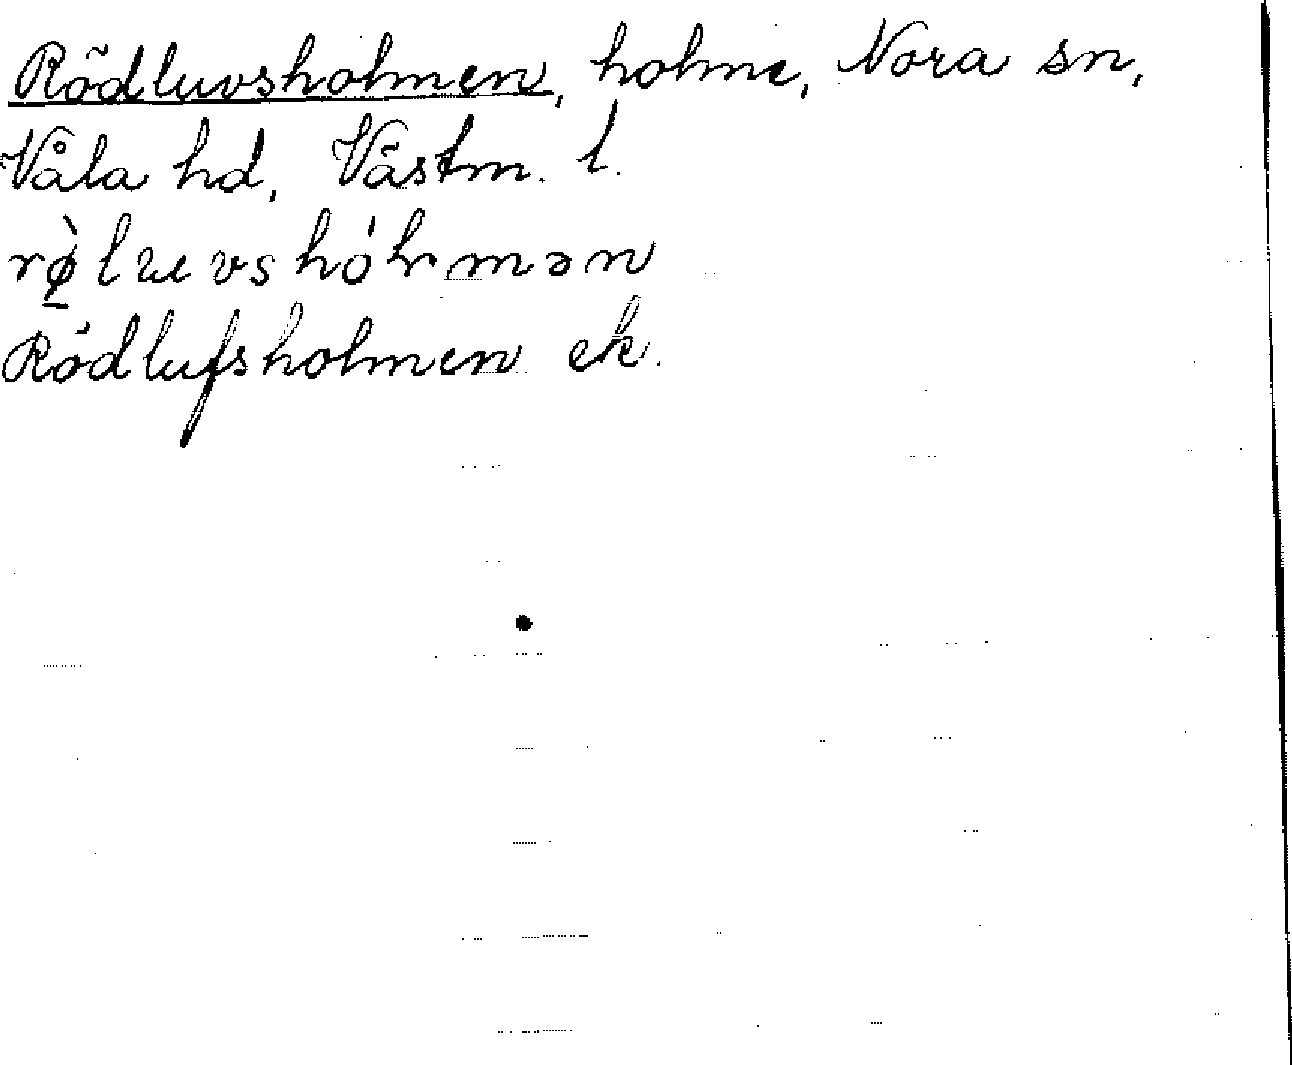 Rödluvsholmen, holme, Nora sn,
Våla hd, Västm. l.
Rödlufsholmen ek.